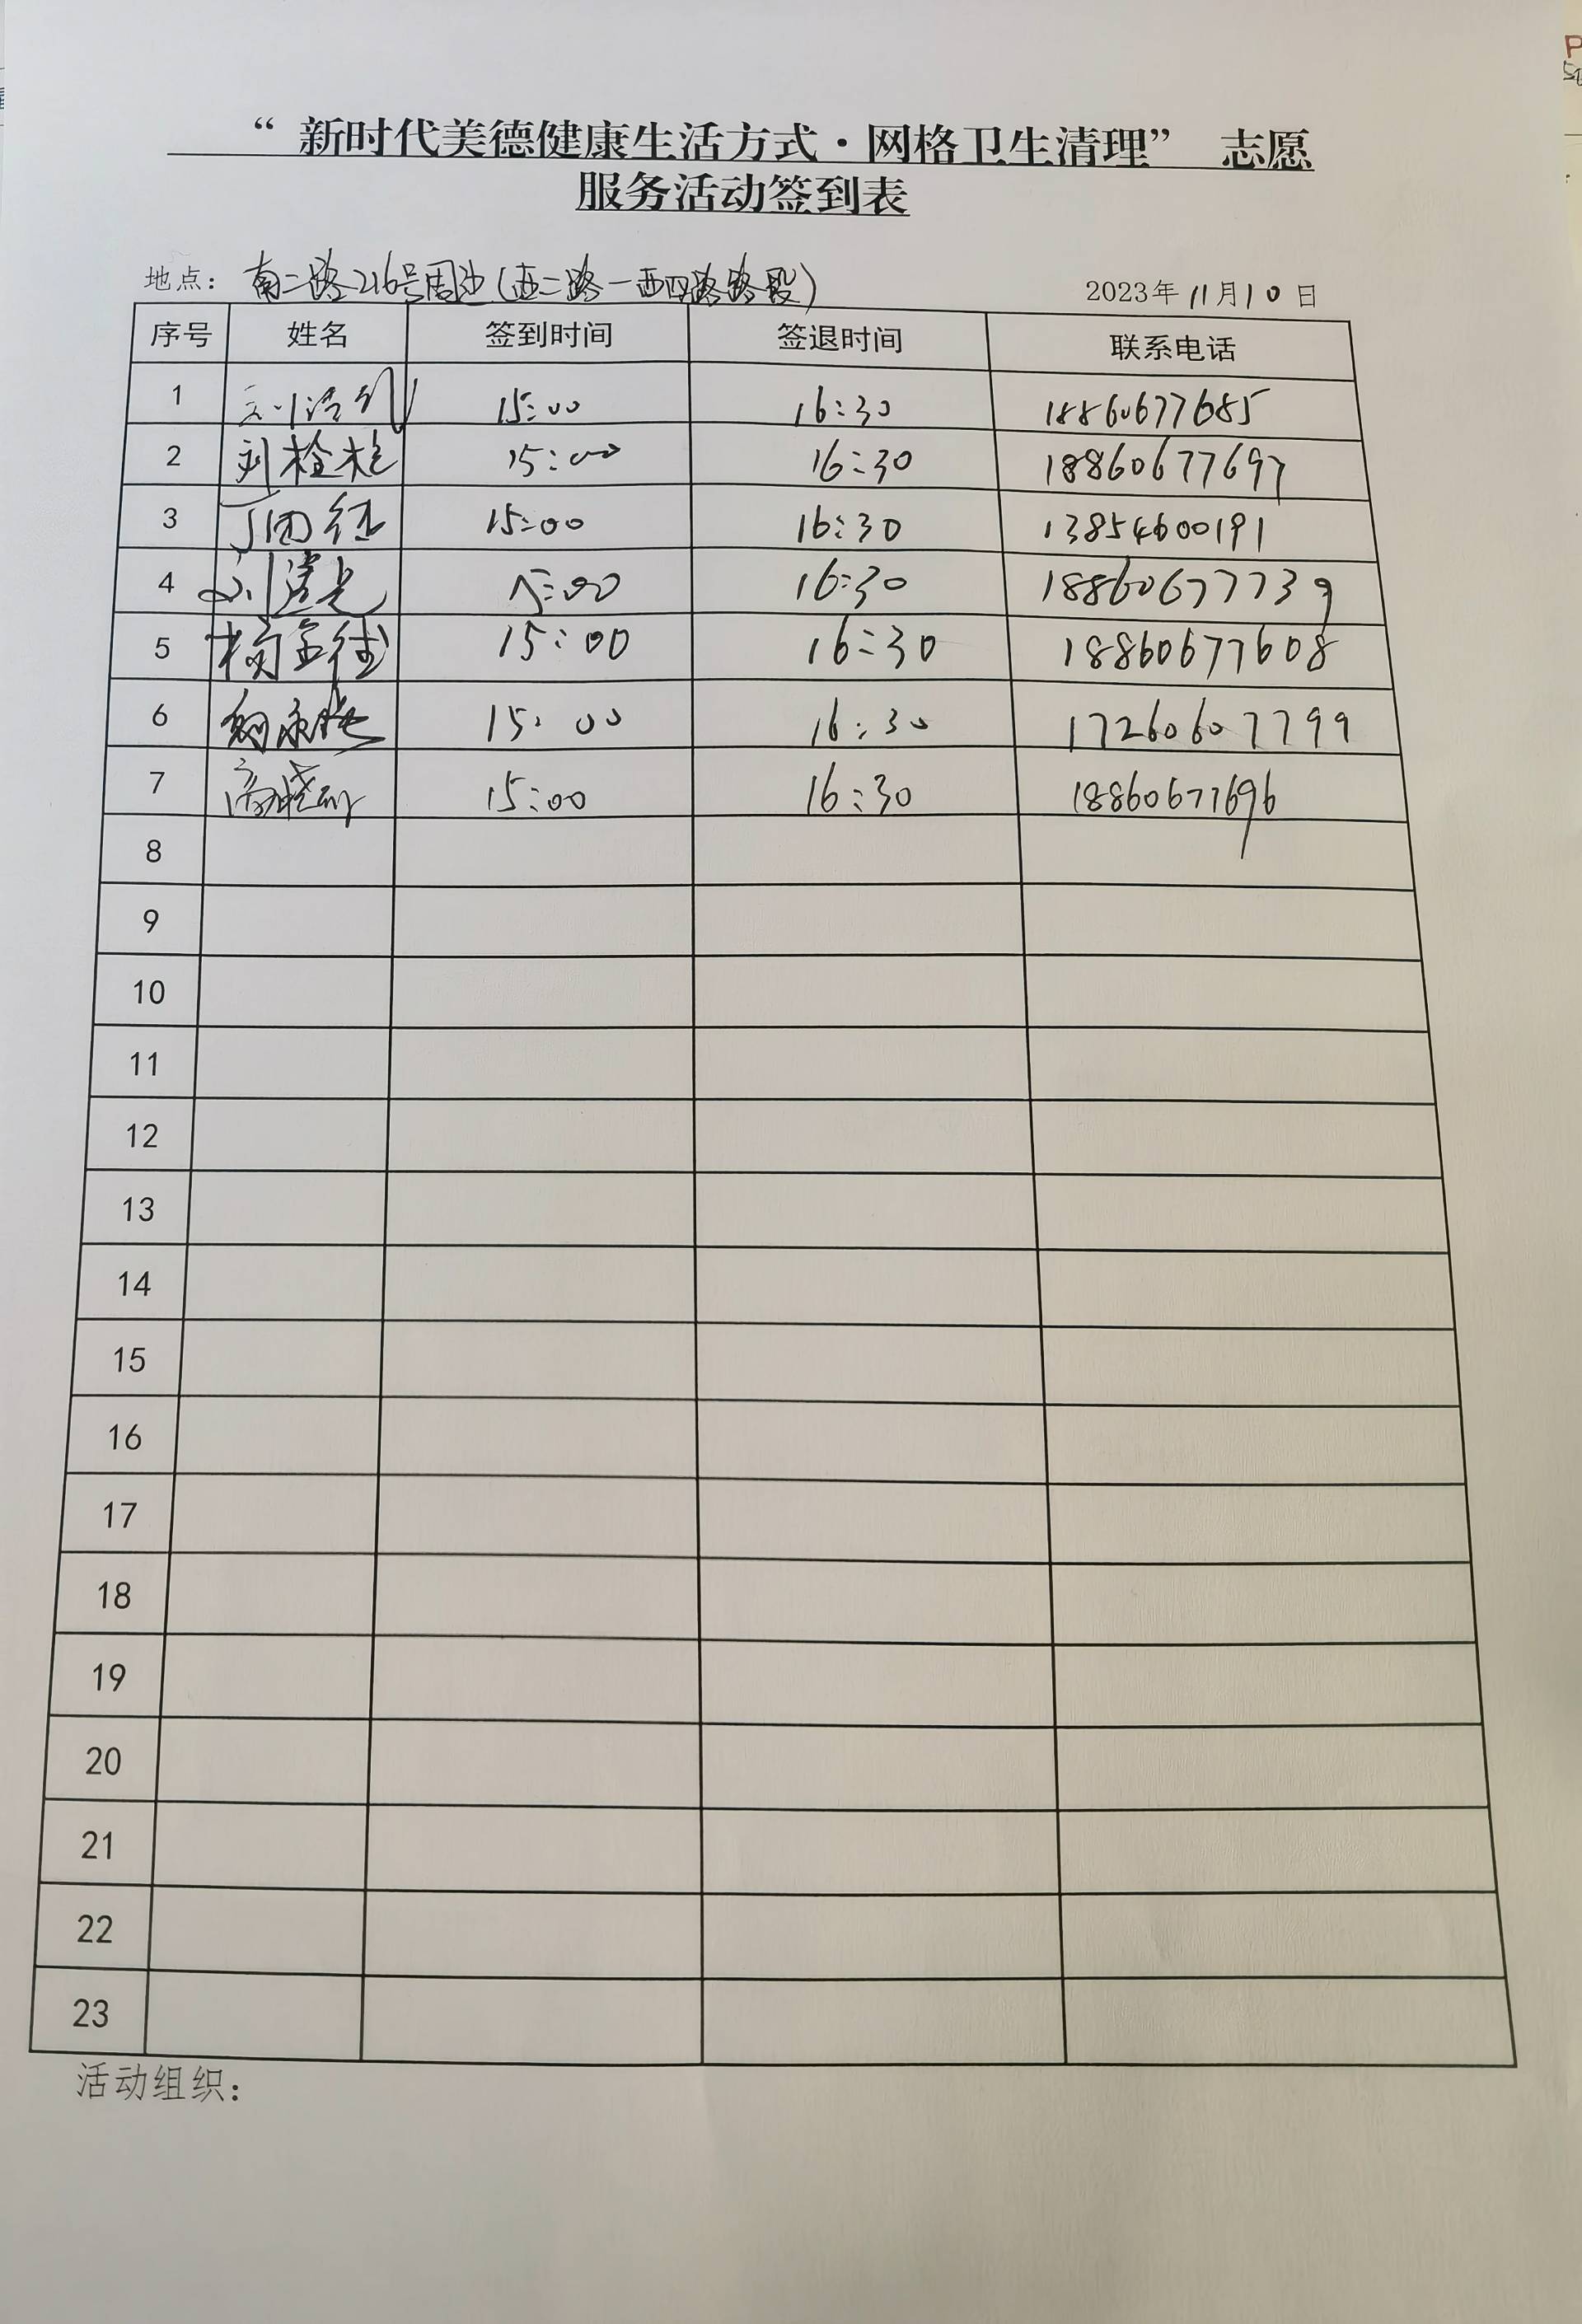 “ 新时代美德健康生活方式·网格卫生清理” 志愿
服务活动签到表
地点： 南二路216号周边(西二路一西四路路段)
2023年11月10日
序号 姓名 签到时间 签退时间 联系电话
1 15:00 16:30 18860677685
2 刘栓柱 15:00 16:30 18860677697
3 15:00 16:30 13854600191
4 15:00 16:30 18860677739
5 杨金 15:00 16:30 18860677608
6 15:00 16:30 17260607799
7 高晓 15:00 16:30 18860677696
8
9
10
11
12
13
14
15
16
17
18
19
20
21
22
23
活动组织：